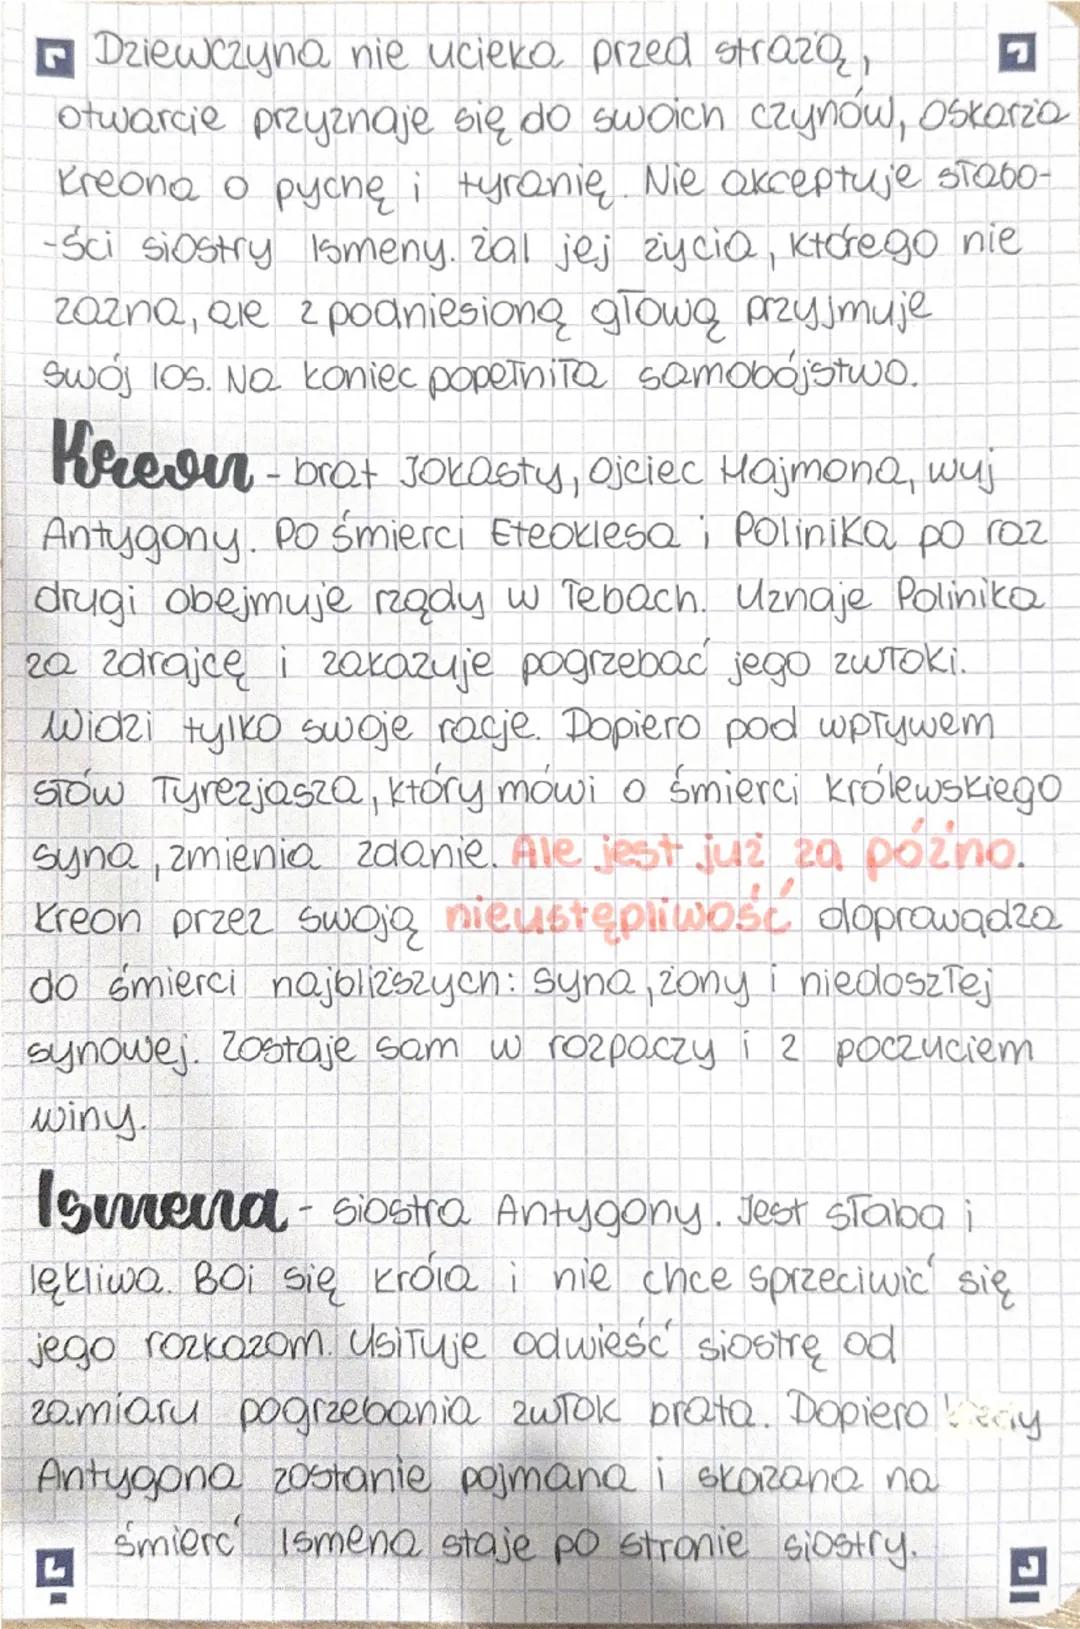 Dziewczyna nie ucieka przed strażą,
otwarcie przyznaje się do swoich czynów, oskarża
Kreona o pychę i tyranię. Nie akceptuje słabo-
-ści siostry Ismeny. żal jej życia, którego nie
zazna, ale z podniesioną głową przyjmuje
swój los. Na koniec popełniła samobójstwo.
Kreon - brat Jokasty, ojciec Hajmona, wuj
Antygony. Po śmierci Eteoklesa i Polinika po raz
drugi obejmuje rządy w Tebach. Uznaje Polinika
za zdrajcę i zakazuje pogrzebać jego zwłoki.
Widzi tylko swoje racje. Dopiero pod wpływem
słów Tyrezjasza, który mówi o śmierci królewskiego
syna, zmienia zdanie. Ale jest już za późno.
Kreon przez swoją nieustępliwość doprowądza
do śmierci najbliższych: syna, żony i niedoszłej
synowej. Zostaje sam w rozpaczy i z poczuciem
winy.
Ismena - siostra Antygony. Jest słaba i
lękliwa. Boi się króla i nie chce sprzeciwić się
jego rozkazom. Usiłuje odwieść siostrę od
zamiaru pogrzebania zwłok brata. Dopiero
Antygona zostanie pojmana i skazana na
śmierć Ismena staje po stronie siostry.